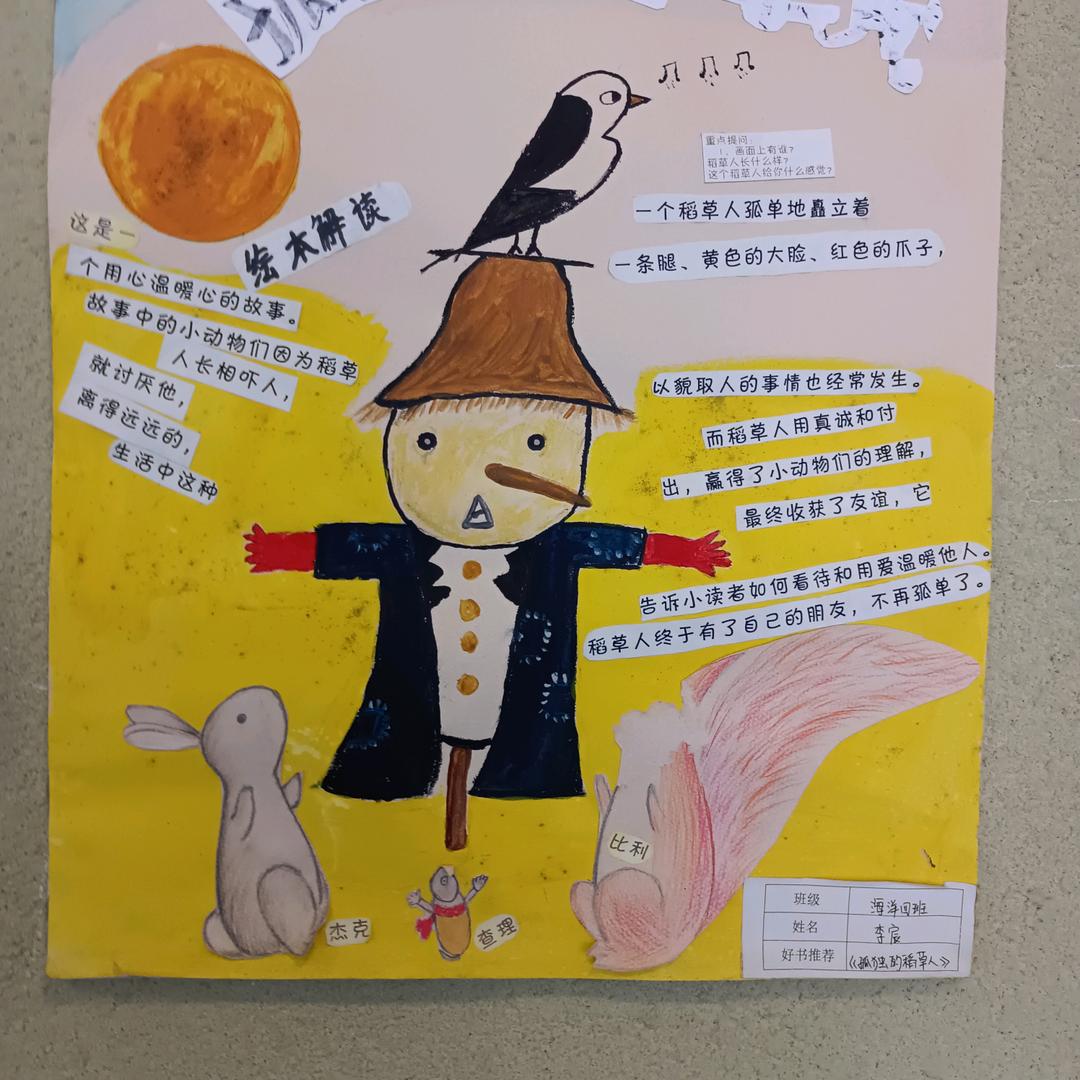 绘本解读
这是一
个用心温暖心的故事。
故事中的小动物们因为稻草
人长相吓人，
就讨厌他，
离得远远的，
生活中这种
重点提问：
1、画面上有谁？
稻草人长什么样？
这个稻草人给你什么感觉？
一个稻草人孤单地矗立着
一条腿、黄色的大脸、红色的爪子，
以貌取人的事情也经常发生。
而稻草人用真诚和付
出，赢得了小动物们的理解，
最终收获了友谊，它
告诉小读者如何看待和用爱温暖他人。
稻草人终于有了自己的朋友，不再孤单了。
杰克
查理
比利
班级 海洋四班
姓名 李宸
好书推荐 《孤独的稻草人》